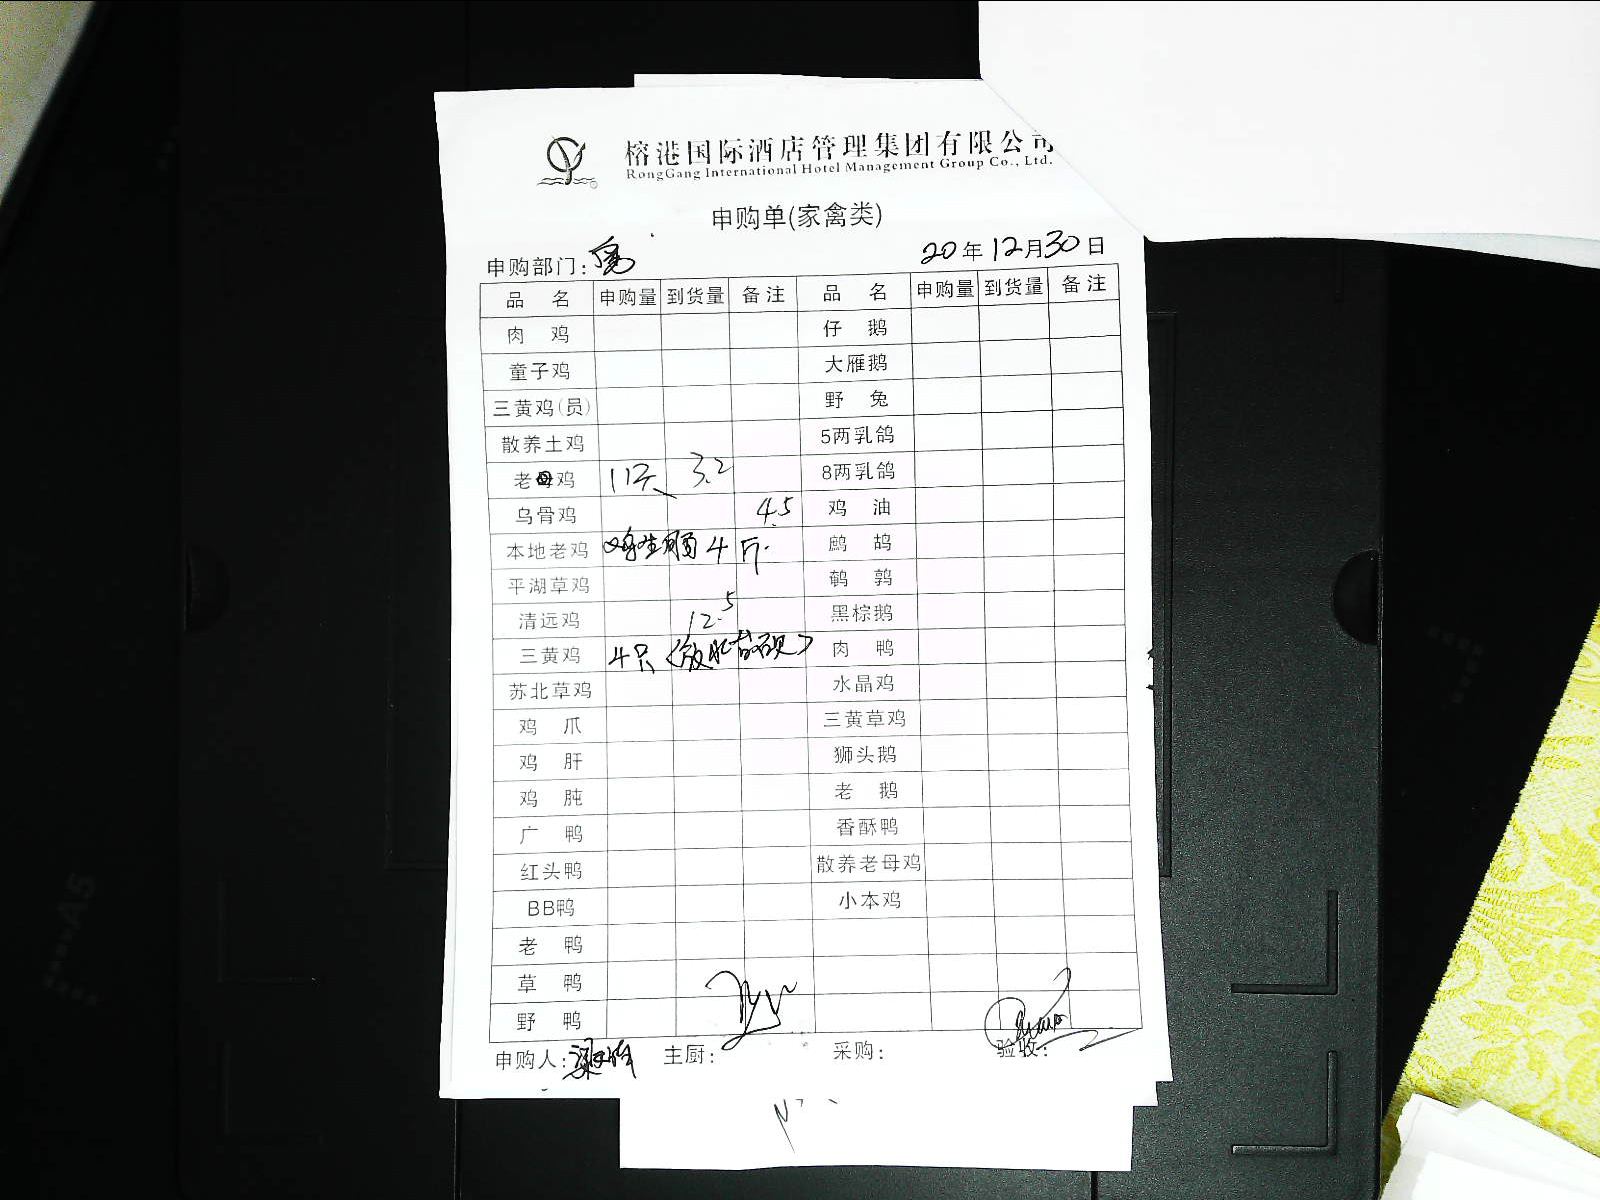 榕港国际酒店管理集团有限公司
RongGang International Hotel Management Group Co., Ltd.
申购单(家禽类)
申购部门: 20年12月30日
品名 申购量 到货量 备注 品名 申购量 到货量 备注
肉鸡 仔鹅
童子鸡 大雁鹅
三黄鸡(员) 野兔
散养土鸡 5两乳鸽
老母鸡 11只 3.2 8两乳鸽
乌骨鸡 4.5 鸡油
本地老鸡 4斤 鹧鸪
平湖草鸡 鹌鹑
清远鸡 12.5 黑棕鹅
三黄鸡 4只 肉鸭
苏北草鸡 水晶鸡
鸡爪 三黄草鸡
鸡肝 狮头鹅
鸡肫 老鹅
广鸭 香酥鸭
红头鸭 散养老母鸡
BB鸭 小本鸡
老鸭
草鸭
野鸭
申购人: 主厨: 采购: 验收: